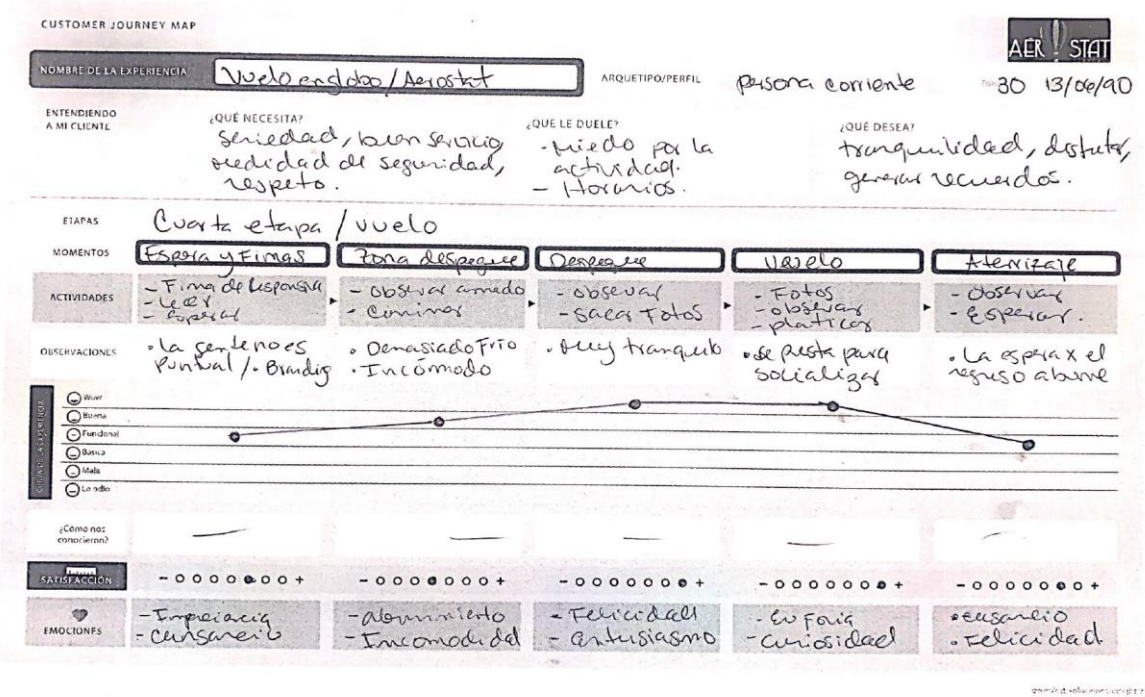 CUSTOMER JOURNEY MAP
AER STAT
NOMBRE DE LA EXPERIENCIA
Vuelo en globo / Aerostat
ARQUETIPO/PERFIL
persona corriente
30 13/06/90
ENTENDIENDO
A MI CLIENTE
¿QUÉ NECESITA?
seriedad, buen servicio,
medidad de seguridad,
respeto.
¿QUE LE DUELE?
- Miedo por la
actividad.
- Horarios.
¿QUÉ DESEA?
tranquilidad, disfrutar,
generar recuerdos.
ETAPAS
Cuarta etapa / vuelo
MOMENTOS
Espera y Firmas
Zona despegue
Despegue
Vuelo
Aterrizaje
ACTIVIDADES
- Firma de
- Leer
- Esperar
- observar armado
- Caminar
- observar
- Sacar Fotos
- Fotos
- observar
- platicar
- Observar
- Esperar.
OBSERVACIONES
• la gente no es
Puntual / • Branding
• Demasiado Frio
• Incómodo
• Muy tranquilo
• se presta para
socializar
• La espera x el
regreso aburre
CURVA DE LA EXPERIENCIA
Wow!
Buena
Funcional
Básica
Mala
Lo odio
¿Cómo nos
conocieron?
SATISFACCIÓN
- +
- +
- +
- +
- +
EMOCIONES
- Impaciencia
- Cansancio
- aburrimiento
- Incomodidad
- Felicidad
- entusiasmo
- Euforia
- curiosidad
• cansancio
• Felicidad